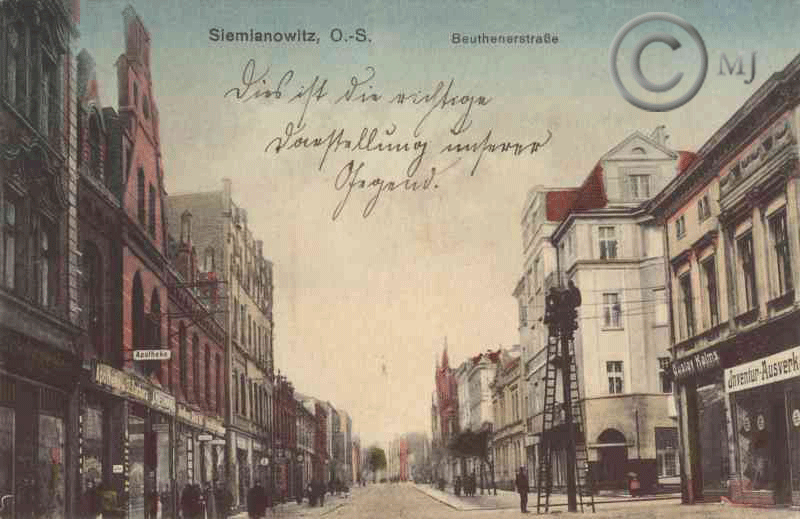 Siemianowitz, O.-S.
Beuthenerstraße
© MJ
Dies ist die richtige
Darstellung unserer
Gegend.
Apotheke
Gustav Kalms
Inventur-Ausverk